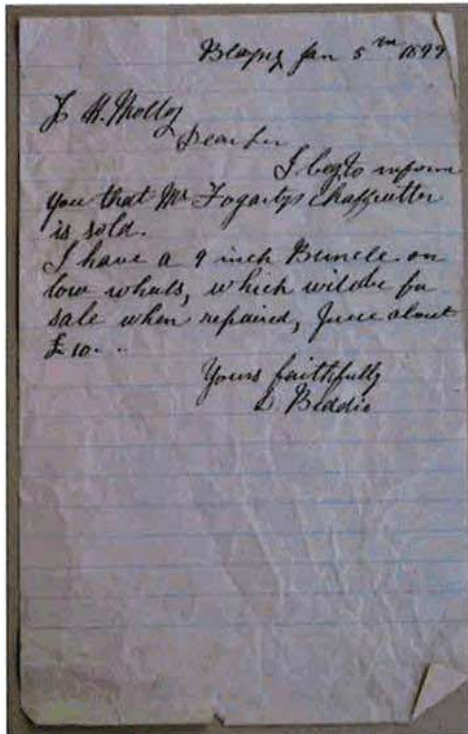 Blayney Jan 5th 1899
J. H. Molloy
Dear Sir
I beg to inform
you that Mr Fogartys Chaffcutter
is sold.
I have a 9 inch Buncle on
low whals, which will be for
sale when repaired, price about
£10..
Yours faithfully
D Beddie